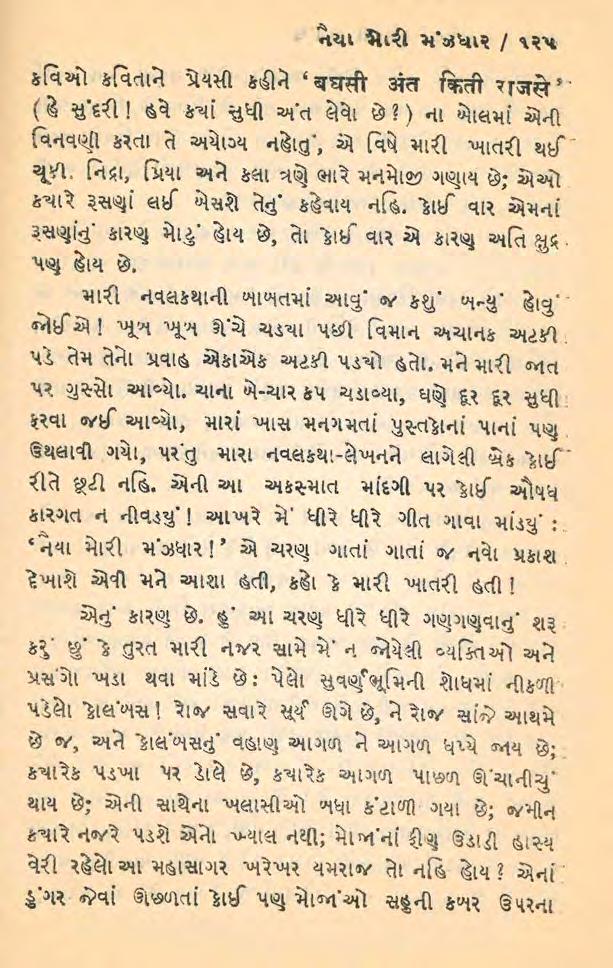 નૈયા મોરી મંઝધાર / ૧૨૫
કવિઓ કવિતાને પ્રેયસી કહીને ‘बघसी अंत किती राजसे’
(હે સુંદરી! હવે કયાં સુધી અંત લેવો છે?) ના બોલમાં એની
વિનવણી કરતા તે અયોગ્ય નહોતું, એ વિષે મારી ખાતરી થઈ
ચૂકી. નિદ્રા, પ્રિયા અને કલા ત્રણે ભારે મનમોજી ગણાય છે; એઓ
કયારે રૂસણાં લઈ બેસશે તેનું કહેવાય નહિ. કોઈ વાર એમનાં
રૂસણાંનું કારણ મોટું હોય છે, તો કોઈ વાર એ કારણ અતિ ક્ષુદ્ર
પણ હોય છે.
મારી નવલકથાની બાબતમાં આવું જ કશું બન્યું હોવું
જોઈએ! ખૂબ ખૂબ ઊંચે ચડયા પછી વિમાન અચાનક અટકી
પડે તેમ તેનો પ્રવાહ એકાએક અટકી પડયો હતો. મને મારી જાત
પર ગુસ્સો આવ્યો. ચાના બે-ચાર કપ ચડાવ્યા, ઘણે દૂર દૂર સુધી
ફરવા જઈ આવ્યો, મારાં ખાસ મનગમતાં પુસ્તકોનાં પાનાં પણ
ઉથલાવી ગયો, પરંતુ મારા નવલકથા-લેખનને લાગેલી બ્રેક કોઈ
રીતે છૂટી નહિ. એની આ અકસ્માત માંદગી પર કોઈ ઔષધ
કારગત ન નીવડયું! આખરે મેં ધીરે ધીરે ગીત ગાવા માંડયું :
‘નૈયા મોરી મંઝધાર!’ એ ચરણ ગાતાં ગાતાં જ નવો પ્રકાશ
દેખાશે એવી મને આશા હતી, કહો કે મારી ખાતરી હતી!
એનું કારણ છે. હું આ ચરણ ધીરે ધીરે ગણગણવાનું શરૂ
કરું છું કે તુરત મારી નજર સામે મેં ન જોયેલી વ્યક્તિઓ અને
પ્રસંગો ખડા થવા માંડે છે: પેલો સુવર્ણભૂમિની શોધમાં નીકળી
પડેલો કોલંબસ! રોજ સવારે સૂર્ય ઊગે છે, ને રોજ સાંજે આથમે
છે જ, અને કોલંબસનું વહાણ આગળ ને આગળ ધપ્યે જાય છે;
કયારેક પડખા પર ડોલે છે, કયારેક આગળ પાછળ ઊંચાનીચું
થાય છે; એની સાથેના ખલાસીઓ બધા કંટાળી ગયા છે; જમીન
કયારે નજરે પડશે એનો ખ્યાલ નથી; મોજાંનાં ફીણ ઉડાડી હાસ્ય
વેરી રહેલો આ મહાસાગર ખરેખર યમરાજ તો નહિ હોય? એનાં
ડુંગર જેવાં ઊછળતાં કોઈ પણ મોજાંઓ સહુની કબર ઉપરના